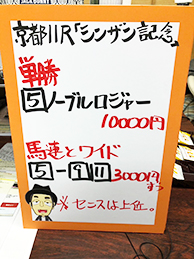 京都11R「シンザン記念」
単勝
5 ノーブルロジャー
10000円
馬連とワイド
5-1 11 3000円
ずつ
※センスは上位。